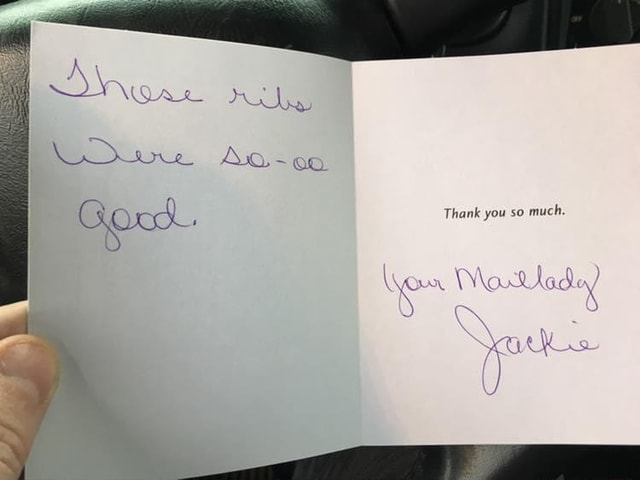 Those ribs
Were so-oo
good.
Thank you so much.
(your Maillady)
Jackie